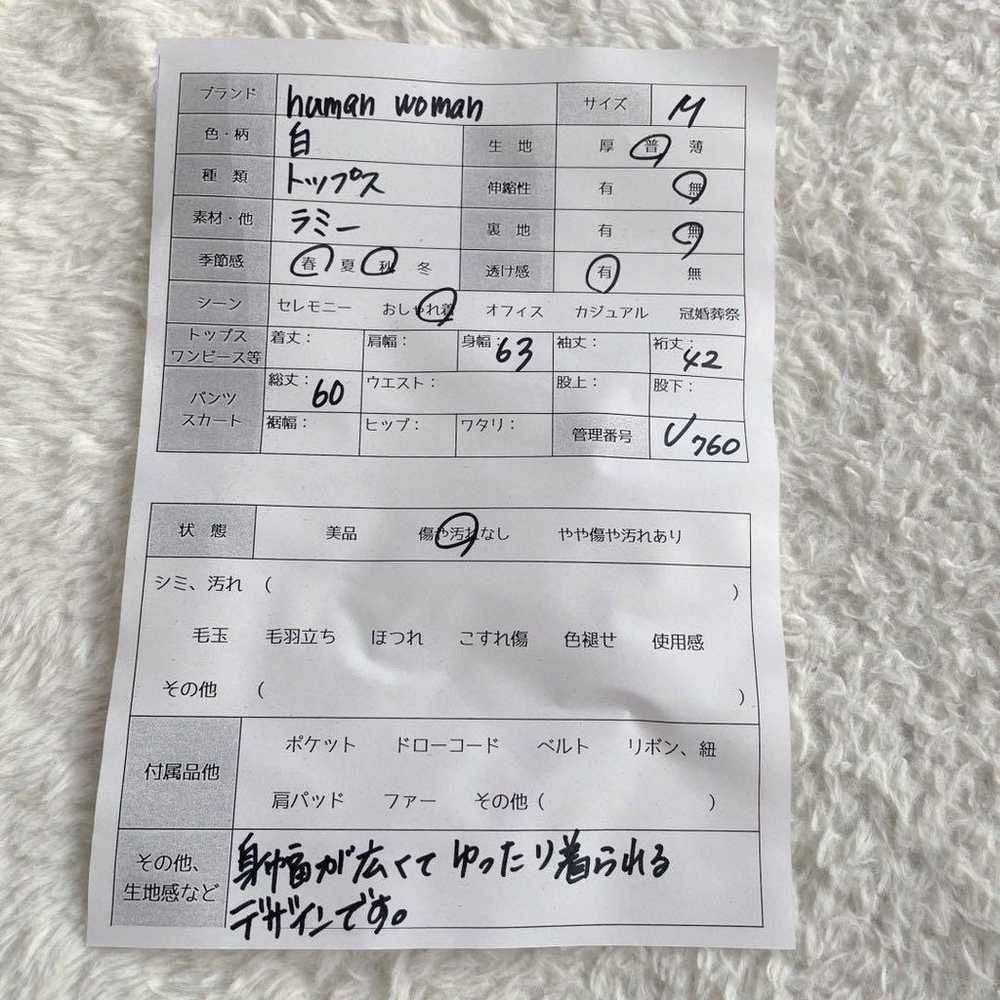 ブランド human woman サイズ M
色・柄 白 生 地 厚 普 薄
種 類 トップス 伸縮性 有 無
素材・他 ラミー 裏 地 有 無
季節感 春 夏 秋 冬 透け感 有 無
シーン セレモニー おしゃれ着 オフィス カジュアル 冠婚葬祭
トップス
ワンピース等 着丈: 肩幅: 身幅: 63 袖丈: 裄丈: 42
パンツ
スカート 総丈: 60 ウエスト: 股上: 股下:
裾幅: ヒップ: ワタリ: 管理番号 V760
状 態 美品 傷や汚れなし やや傷や汚れあり
シミ、汚れ ( )
毛玉 毛羽立ち ほつれ こすれ傷 色褪せ 使用感
その他 ( )
付属品他 ポケット ドローコード ベルト リボン、紐
肩パッド ファー その他 ( )
その他、
生地感など
身幅が広くてゆったり着られる
デザインです。